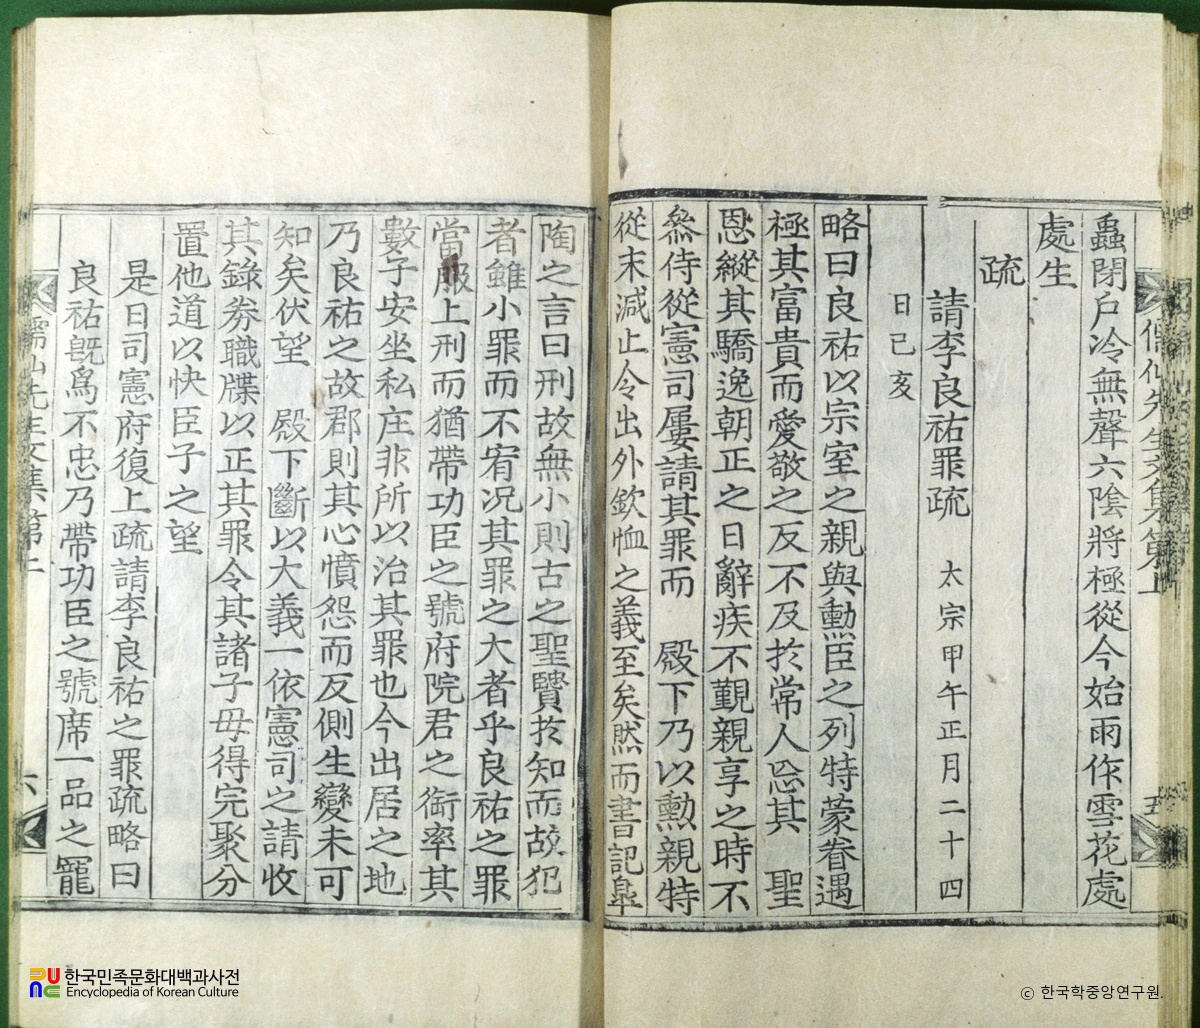 蟲閉戶冷無聲六陰將極從今始雨作雪花處
處生
疏
請李良祐罪疏 太宗甲午正月二十四
日已亥
略曰良祐以宗室之親與勳臣之列特蒙眷遇
極其富貴而愛敬之反不及於常人忘其 聖
恩縱其驕逸朝正之日辭疾不覲親享之時不
叅侍從憲司屢請其罪而 殿下乃以勳親特
從末減止令出外欽恤之義至矣然而書記臯
陶之言曰刑故無小則古之聖賢於知而故犯
者雖小罪而不宥况其罪之大者乎良祐之罪
當服上刑而猶帶功臣之號府院君之銜率其
數子安坐私庄非所以治其罪也今出居之地
乃良祐之故郡則其心憤怨而反側生變未可
知矣伏望 殿下斷以大義一依憲司之請收
其錄券職牒以正其罪令其諸子毋得完聚分
置他道以快臣子之望
是日司憲府復上疏請李良祐之罪疏略曰
良祐旣爲不忠乃帶功臣之號席一品之寵
儒仙先生文集第二
六
한국민족문화대백과사전
Encyclopedia of Korean Culture
ⓒ 한국학중앙연구원.